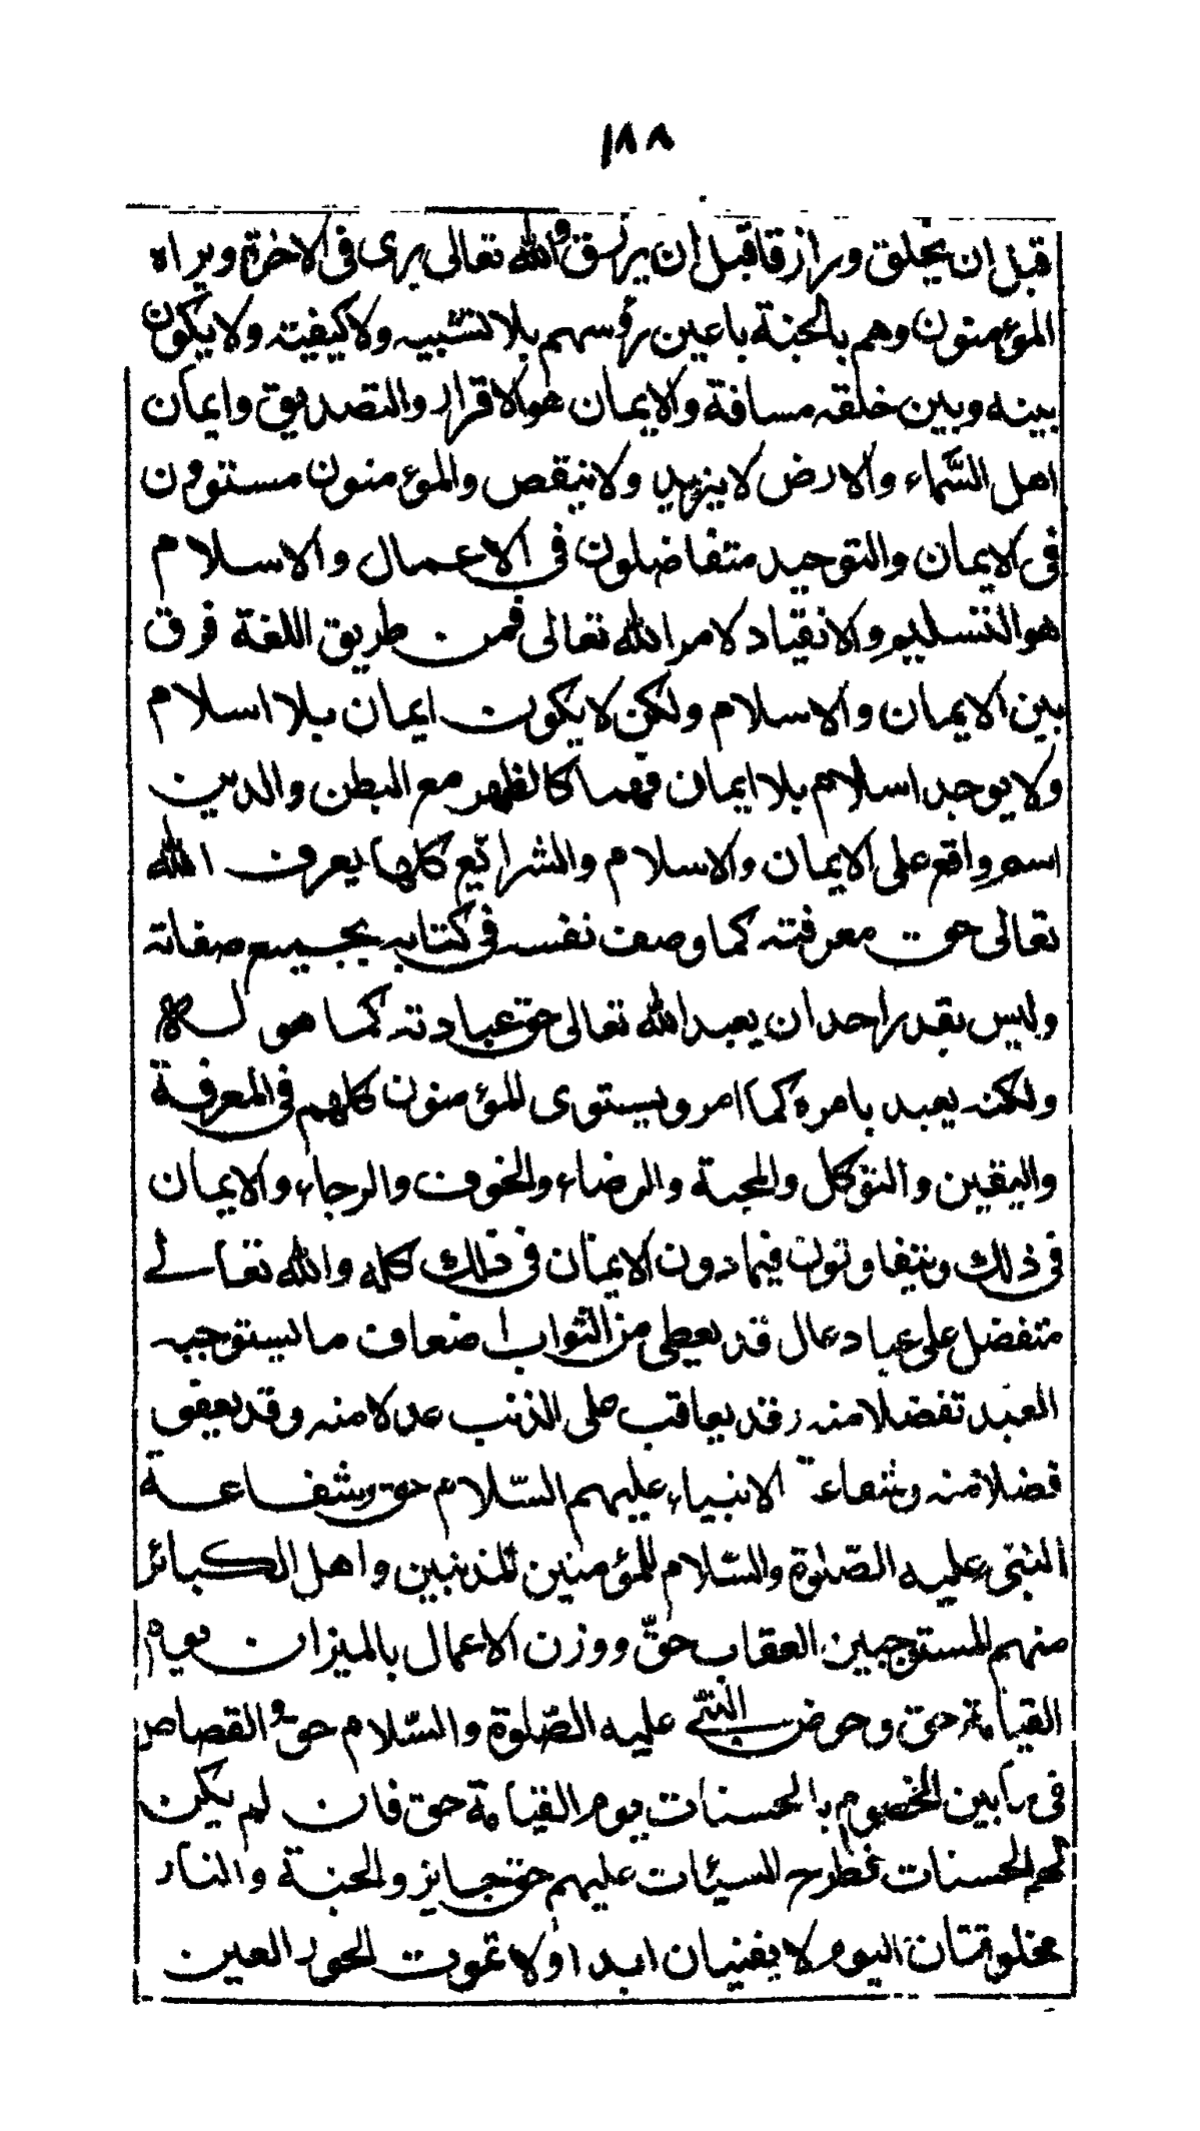 ١٨٨
قبل ان يخلق ورازقا قبل ان يرزق والله تعالى يرى فى الاخرة ويراه
المؤمنون وهم بالجنة باعين رؤسهم بلا تشبيه ولا كيفيته ولا يكون
بينه وبين خلقه مسافة والايمان هو الاقرار والتصديق وايمان
اهل السماء والارض لا يزيد ولا ينقص والمؤمنون مستوون
فى الايمان والتوحيد متفاضلون فى الاعمال والاسلام
هو التسليم والانقياد لامر الله تعالى فمن طريق اللغة فرق
بين الايمان والاسلام ولكن لا يكون ايمان بلا اسلام
ولا يوجد اسلام بلا ايمان فهما كالظهر مع البطن والدين
اسم واقع على الايمان والاسلام والشرائع كلها يعرف الله
تعالى حق معرفته كما وصف نفسه فى كتابه بجميع صفاته
وليس يقدر احد ان يعبد الله تعالى حق عبادته كما هو له
ولكنه يعبد بامره كما امر ويستوى المؤمنون كلهم فى المعرفة
واليقين والتوكل والمحبة والرضاء والخوف والرجاء والايمان
فى ذلك ويتفاوتون فيما دون الايمان فى ذلك كله والله تعالى
متفضل على عباد عال قد يعطى من الثواب اضعاف ما يستوجبه
العبد تفضلا منه وقد يعاقب على الذنب عدلا منه وقد يعفو
فضلا منه وشفاعة الانبياء عليهم السّلام حق وشفاعة
النبّى عليه الصّلوة والسّلام للمؤمنين المذنبين واهل الكبائر
منهم المستوجبين العقاب حقّ ووزن الاعمال بالميزان يوم
القيامة حق وحوض النبّى عليه الصّلوة والسّلام حق والقصاص
فى ما بين الخصوم بالحسنات يوم القيامة حق فان لم يكن
لهم الحسنات فطرح السيئات عليهم حق جايز والجنة والنار
مخلوقتان اليوم لا يفنيان ابدا ولا تموت الحور العين